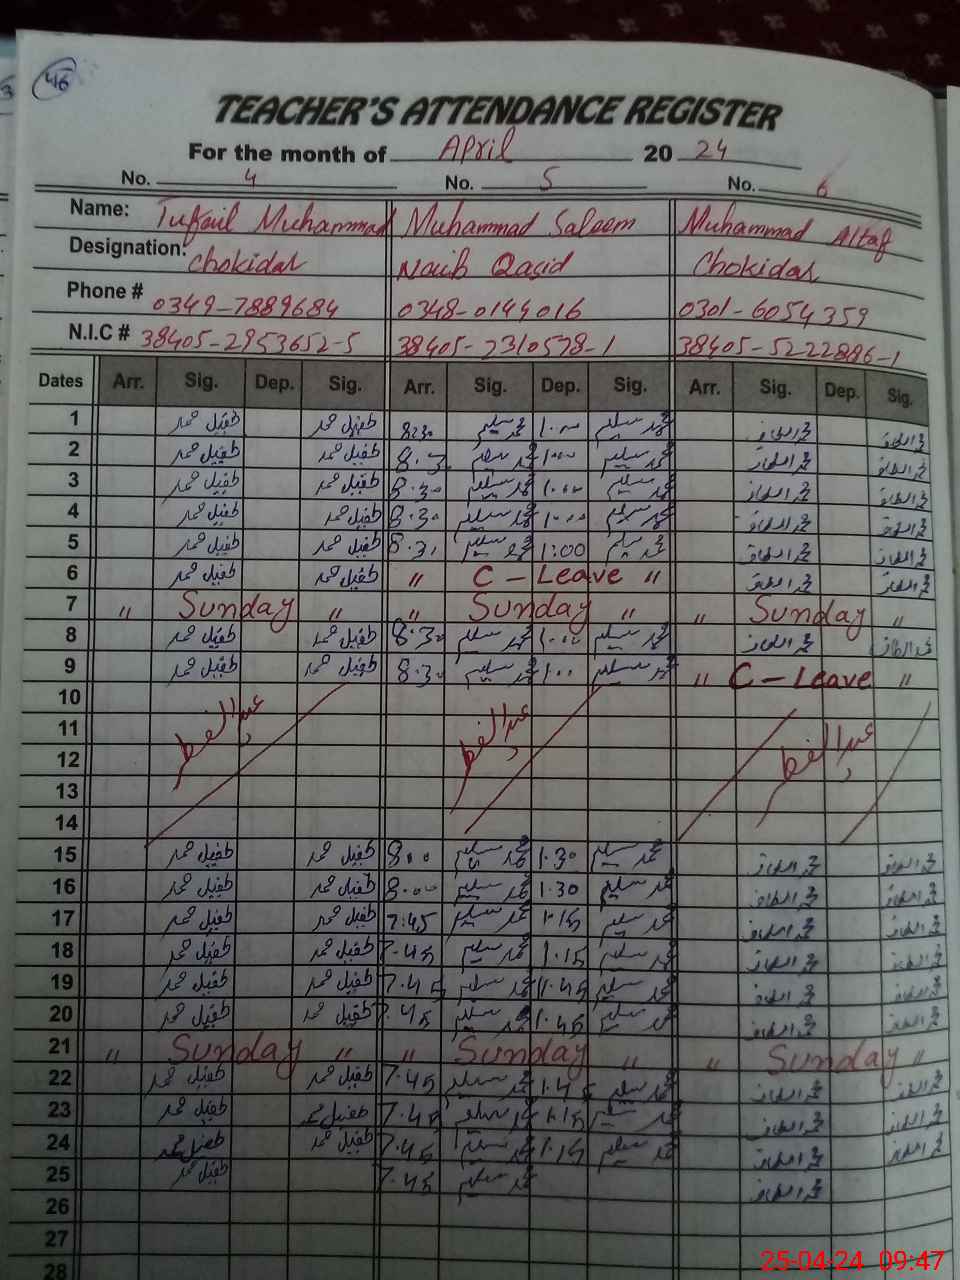 46
TEACHER'S ATTENDANCE REGISTER
For the month of April 2024
No. 4 No. 5 No. 6
Name: Tufail Muhammad Muhammad Saleem Muhammad Altaf
Designation: Chokidar Naib Qasid Chokidar
Phone # 0349-7889684 0348-0144016 0301-6054359
N.I.C # 38405-2953652-5 38405-2310578-1 38405-5222886-1
Dates Arr. Sig. Dep. Sig. Arr. Sig. Dep. Sig. Arr. Sig. Dep. Sig.
1 طفیل محمد طفیل محمد 8:30 محمد سلیم 1:00 محمد سلیم محمد الطاف محمد الطاف
2 طفیل محمد طفیل محمد 8:30 محمد سلیم 1:00 محمد سلیم محمد الطاف محمد الطاف
3 طفیل محمد طفیل محمد 8:30 محمد سلیم 1:00 محمد سلیم محمد الطاف محمد الطاف
4 طفیل محمد طفیل محمد 8:30 محمد سلیم 1:00 محمد سلیم محمد الطاف محمد الطاف
5 طفیل محمد طفیل محمد 8:30 محمد سلیم 1:00 محمد سلیم محمد الطاف محمد الطاف
6 طفیل محمد طفیل محمد " C - Leave " محمد الطاف محمد الطاف
7 " Sunday " " Sunday " " Sunday "
8 طفیل محمد طفیل محمد 8:30 محمد سلیم 1:00 محمد سلیم محمد الطاف محمد الطاف
9 طفیل محمد طفیل محمد 8:30 محمد سلیم 1:00 محمد سلیم " C - Leave "
10
11 عید الفطر عید الفطر عید الفطر
12
13
14
15 طفیل محمد طفیل محمد 8:00 محمد سلیم 1:30 محمد سلیم محمد الطاف محمد الطاف
16 طفیل محمد طفیل محمد 8:00 محمد سلیم 1:30 محمد سلیم محمد الطاف محمد الطاف
17 طفیل محمد طفیل محمد 7:45 محمد سلیم 1:15 محمد سلیم محمد الطاف محمد الطاف
18 طفیل محمد طفیل محمد 7:45 محمد سلیم 1:15 محمد سلیم محمد الطاف محمد الطاف
19 طفیل محمد طفیل محمد 7:45 محمد سلیم 1:45 محمد سلیم محمد الطاف محمد الطاف
20 طفیل محمد طفیل محمد 7:45 محمد سلیم 1:45 محمد سلیم محمد الطاف محمد الطاف
21 " Sunday " " Sunday " " Sunday "
22 طفیل محمد طفیل محمد 7:45 محمد سلیم 1:45 محمد سلیم محمد الطاف محمد الطاف
23 طفیل محمد طفیل محمد 7:45 محمد سلیم 1:15 محمد سلیم محمد الطاف محمد الطاف
24 طفیل محمد طفیل محمد 7:45 محمد سلیم 1:15 محمد سلیم محمد الطاف محمد الطاف
25 طفیل محمد 7:45 محمد سلیم محمد الطاف
26
27
28
25-04-24 09:47